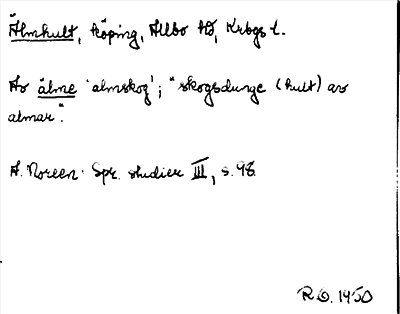 Älmhult, köping, Allbo hd, Krbgs l.
Av älme 'almskog'; "skogsdunge (hult) av
almar".
A. Noreen: Spr. studier III, s. 98.
R.O. 1950